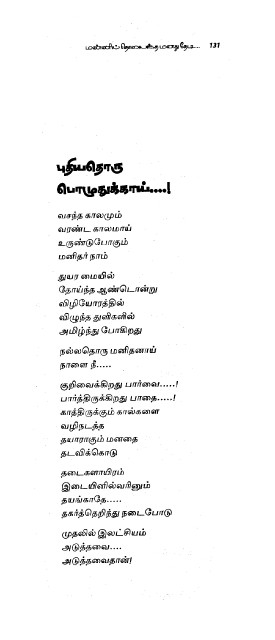 மண்ணில் தொலைந்த மனது தேடி... 131
புதியதொரு
பொழுதுக்காய்....!
வசந்த காலமும்
வரண்ட காலமாய்
உருண்டுபோகும்
மனிதர் நாம்
துயர மையில்
தோய்ந்த ஆண்டொன்று
விழியோரத்தில்
விழுந்த துளிகளில்
அமிழ்ந்து போகிறது
நல்லதொரு மனிதனாய்
நாளை நீ.....
குறிவைக்கிறது பார்வை.....!
பார்த்திருக்கிறது பாதை.....!
காத்திருக்கும் கால்களை
வழிநடத்த
தயாராகும் மனதை
தடவிக்கொடு
தடைகளாயிரம்
இடையினில்வரினும்
தயங்காதே.....
தகர்த்தெறிந்து நடைபோடு
முதலில் இலட்சியம்
அடுத்தவை....
அடுத்தவைதான்!